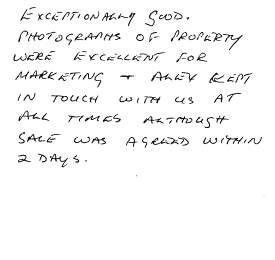 EXCEPTIONALLY GOOD.
PHOTOGRAPHS OF PROPERTY
WERE EXCELLENT FOR
MARKETING + ALEX KEPT
IN TOUCH WITH US AT
ALL TIMES ALTHOUGH
SALE WAS AGREED WITHIN
2 DAYS.